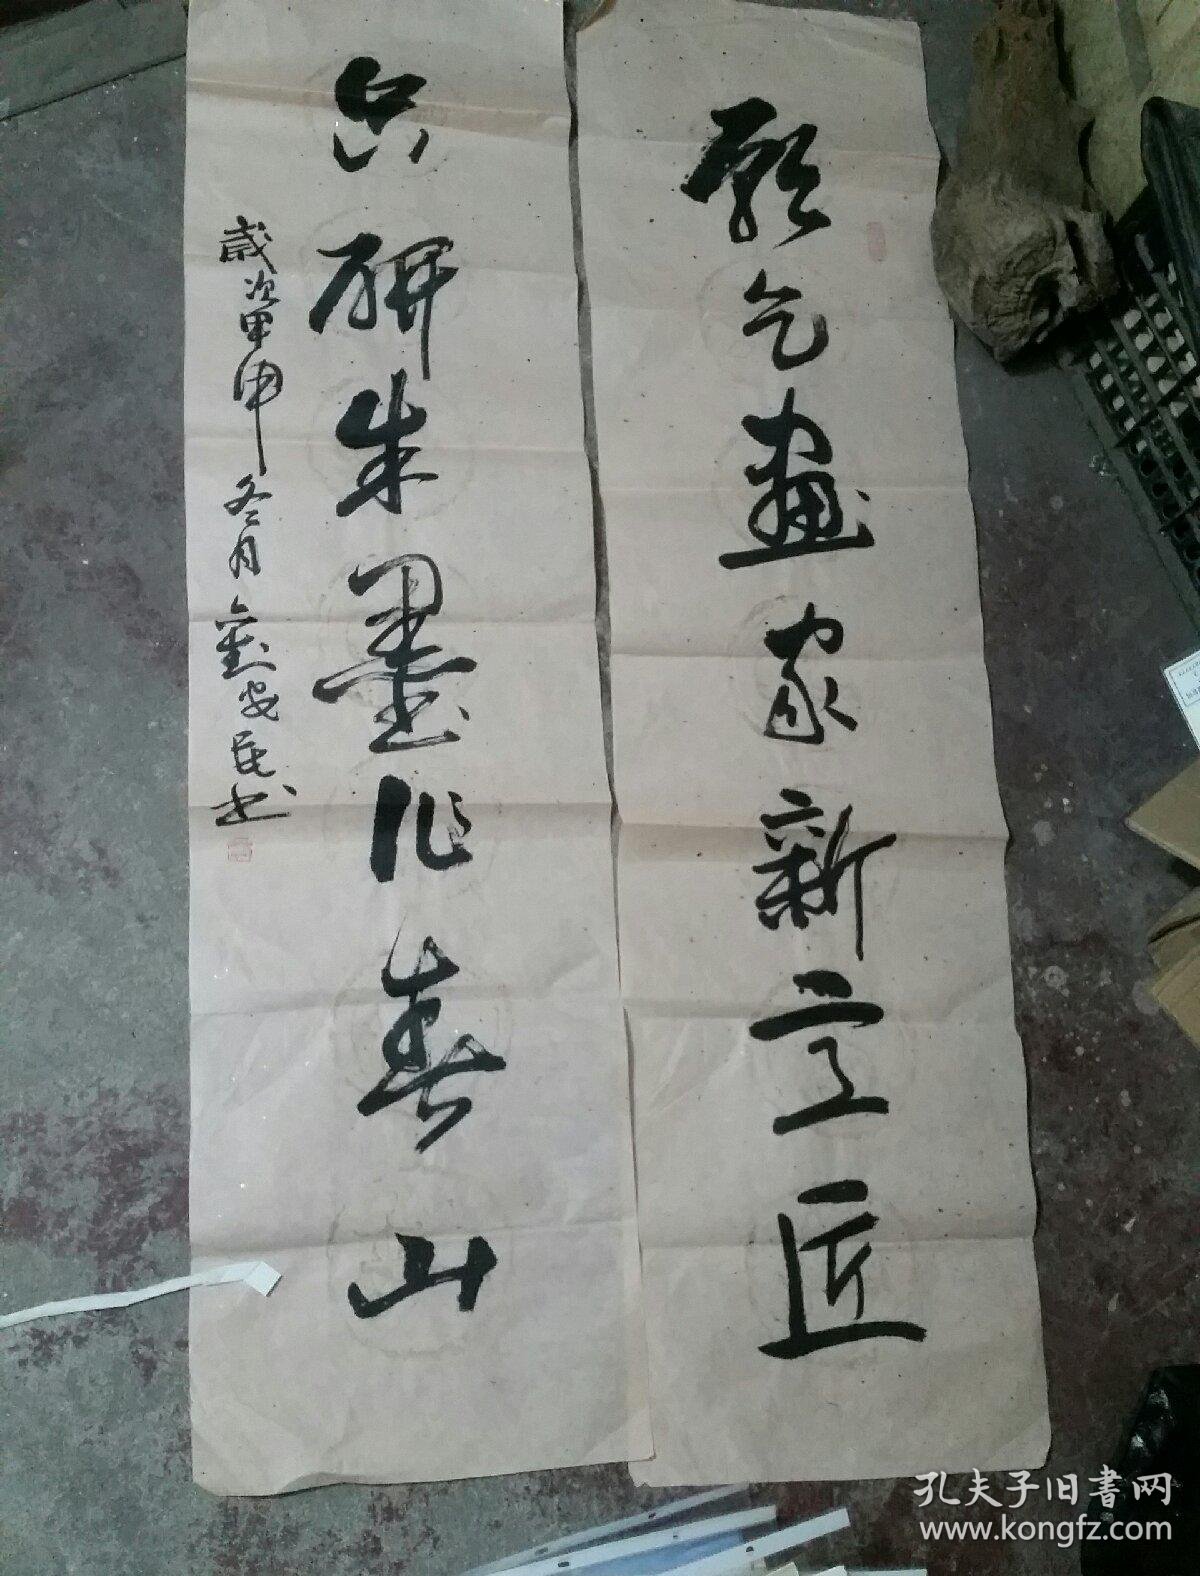 願乞畫家新意匠
只研朱墨作春山
歲次甲申冬月劉安民书
孔夫子旧書网
www.kongfz.com